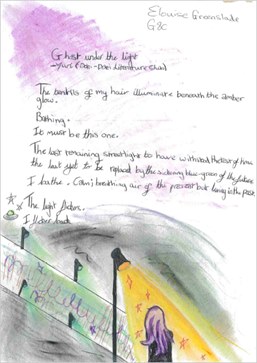 G8C
Ghost under the light
The tendrils of my hair illuminate beneath the amber
glow.
Bathing.
It must be this one.
The last remaining streetlight to have withstood the test of time
the last yet to be replaced by the sickening blue-green of the future
I bathe. Calm; breathing air of the present but living in the past.
The light flickers.
I flicker back.